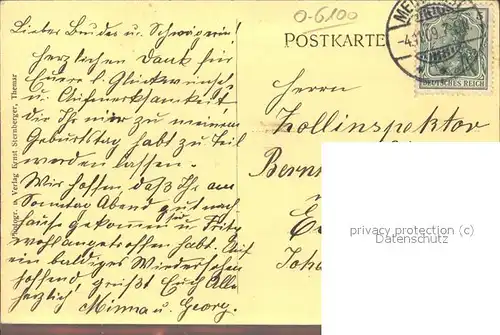 O-6100
POSTKARTE
DEUTSCHES REICH
Photogr. u. Verlag Ernst Sternberger, Themar
Lieber Bruder u. Schwägerin!
Herzlichen Dank für
Eure l. Glückwünsche
u. Aufmerksamkeit
die Ihr mir zu meinem
Geburtstag habt zu Teil
werden lassen.
Wir hoffen, daß Ihr am
Sonntag Abend gut nach
Hause gekommen u. Fritz
wohl angetroffen habt. Auf
ein baldiges Wiedersehen
hoffend, grüßt Euch Alle
herzlich, Minna u. Georg.
Herrn
Zollinspektor
Bern
privacy protection (c)
Datenschutz
Joha